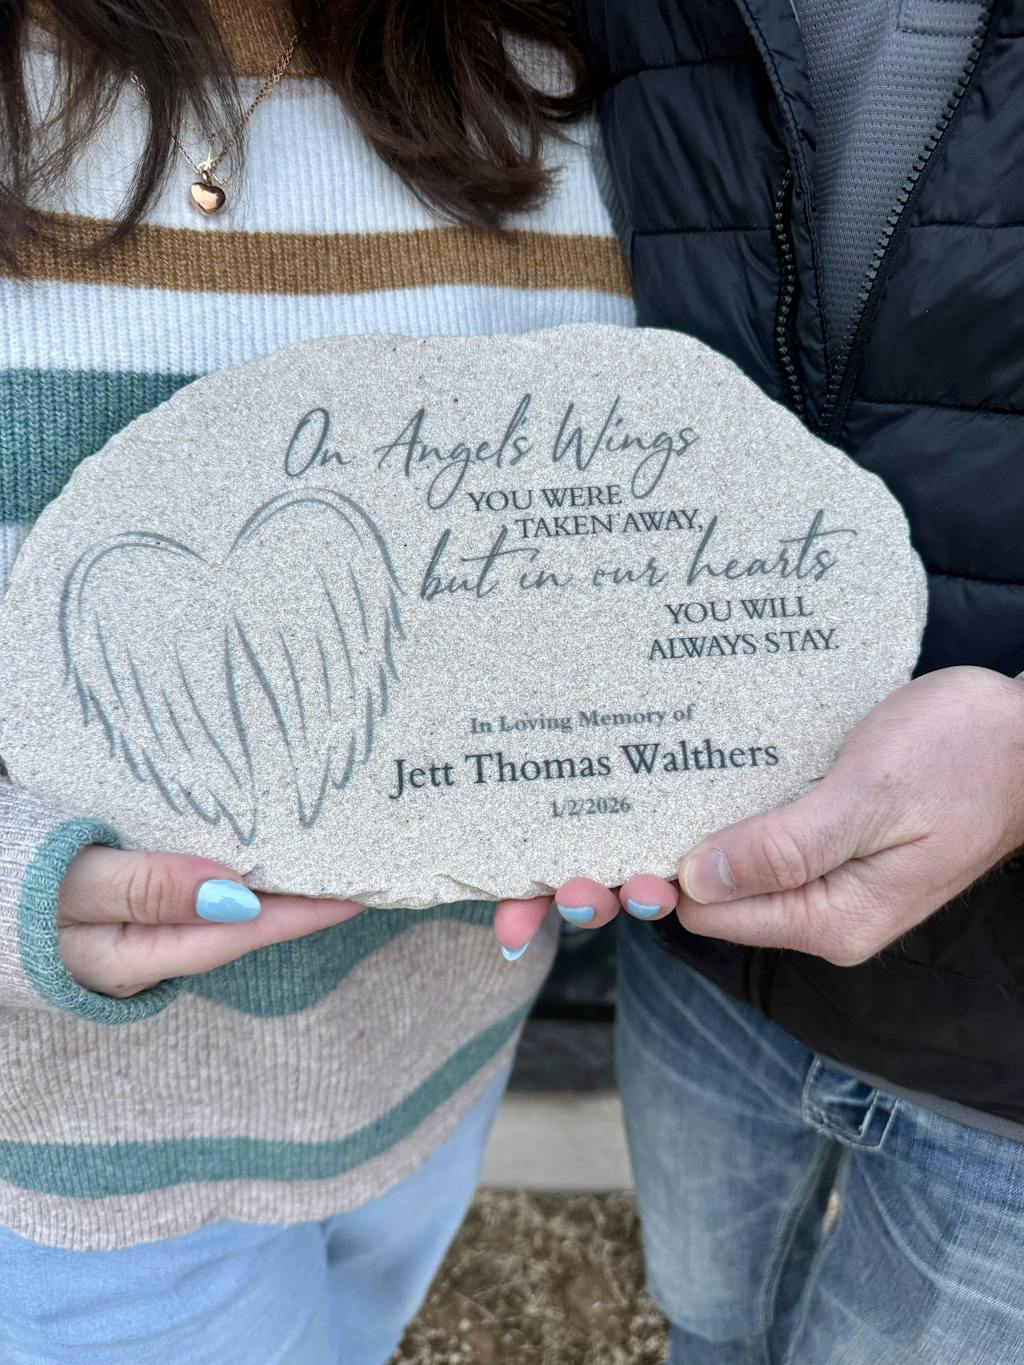 On Angel's Wings
YOU WERE
TAKEN AWAY,
but in our hearts
YOU WILL
ALWAYS STAY.
In Loving Memory of
Jett Thomas Walthers
1/2/2026